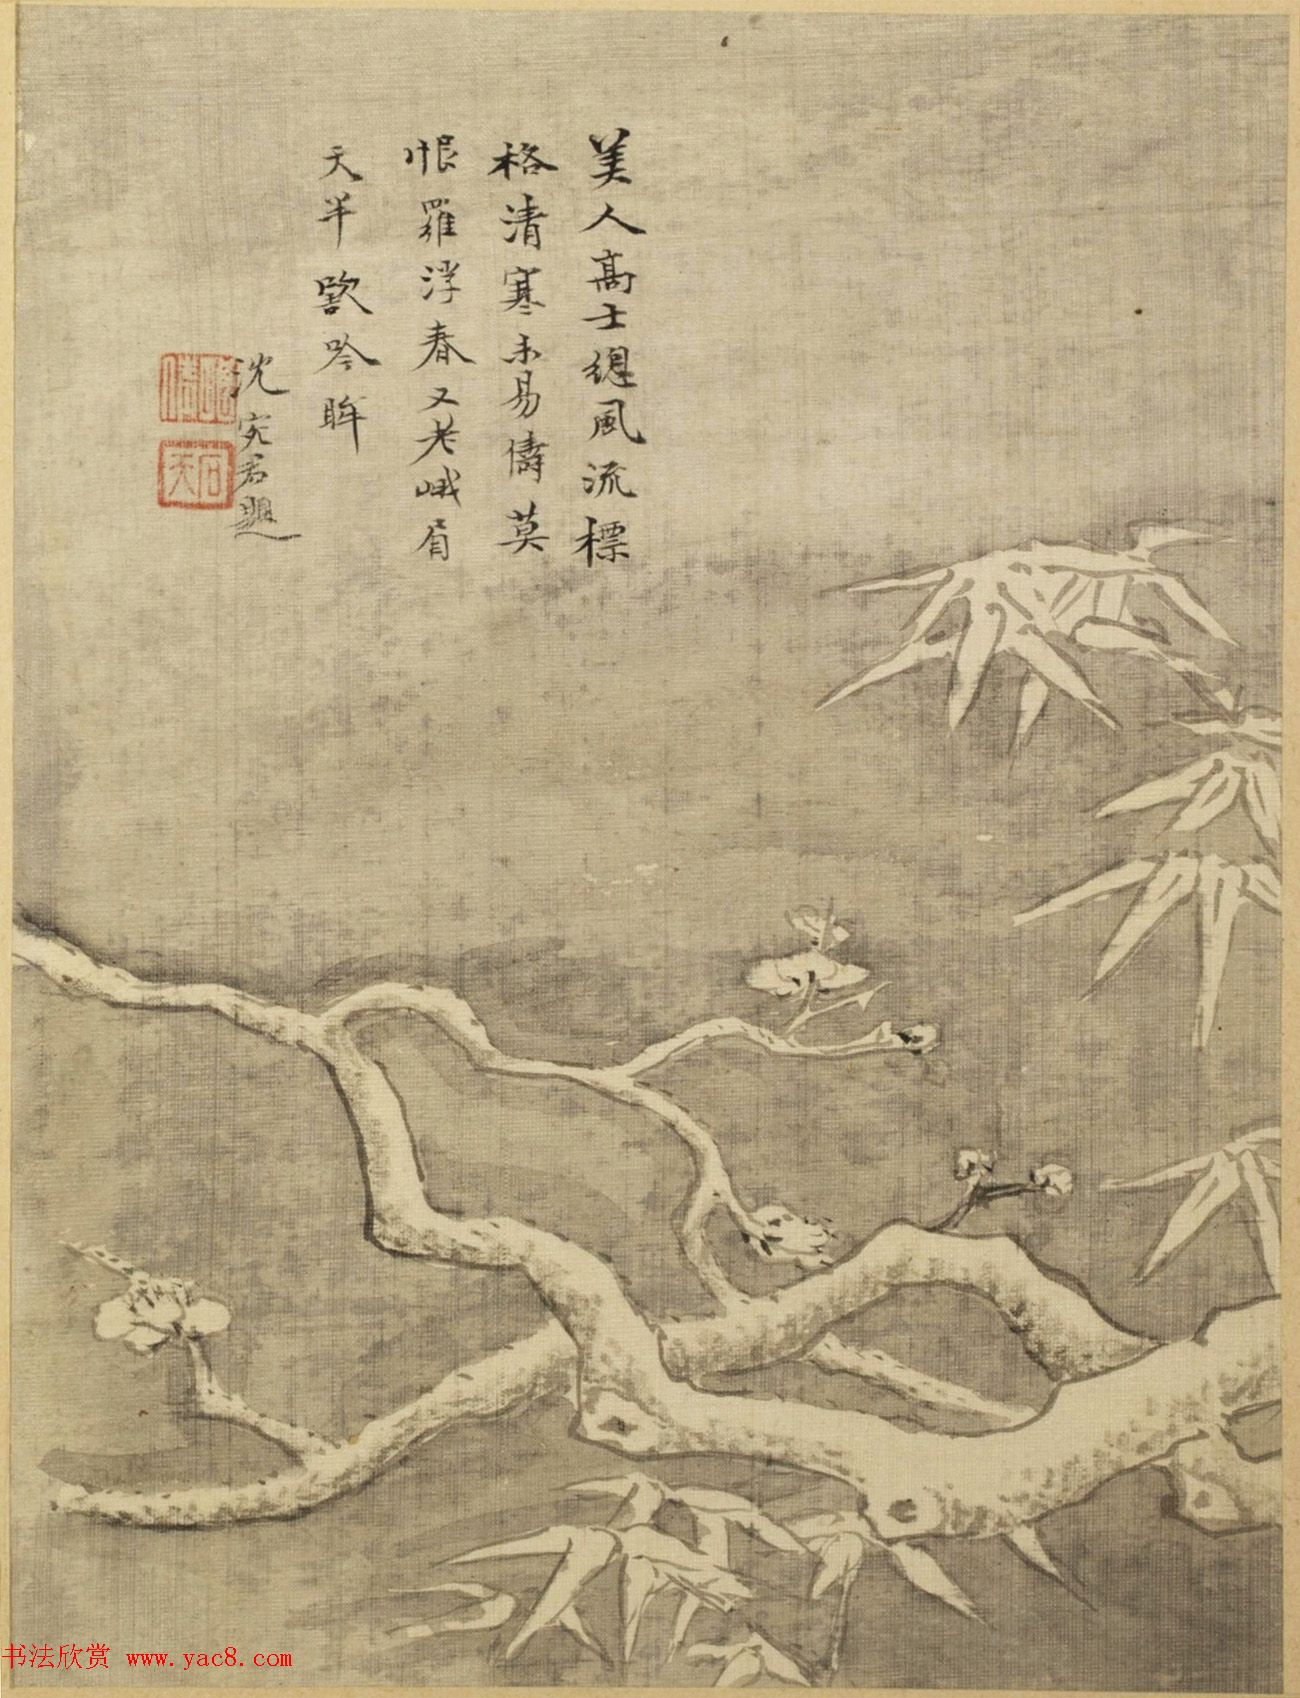 美人高士總風流標
格清寒未易儔莫
恨羅浮春又老峨眉
天半豁吟眸
沈宛君題
书法欣赏 www.yac8.com